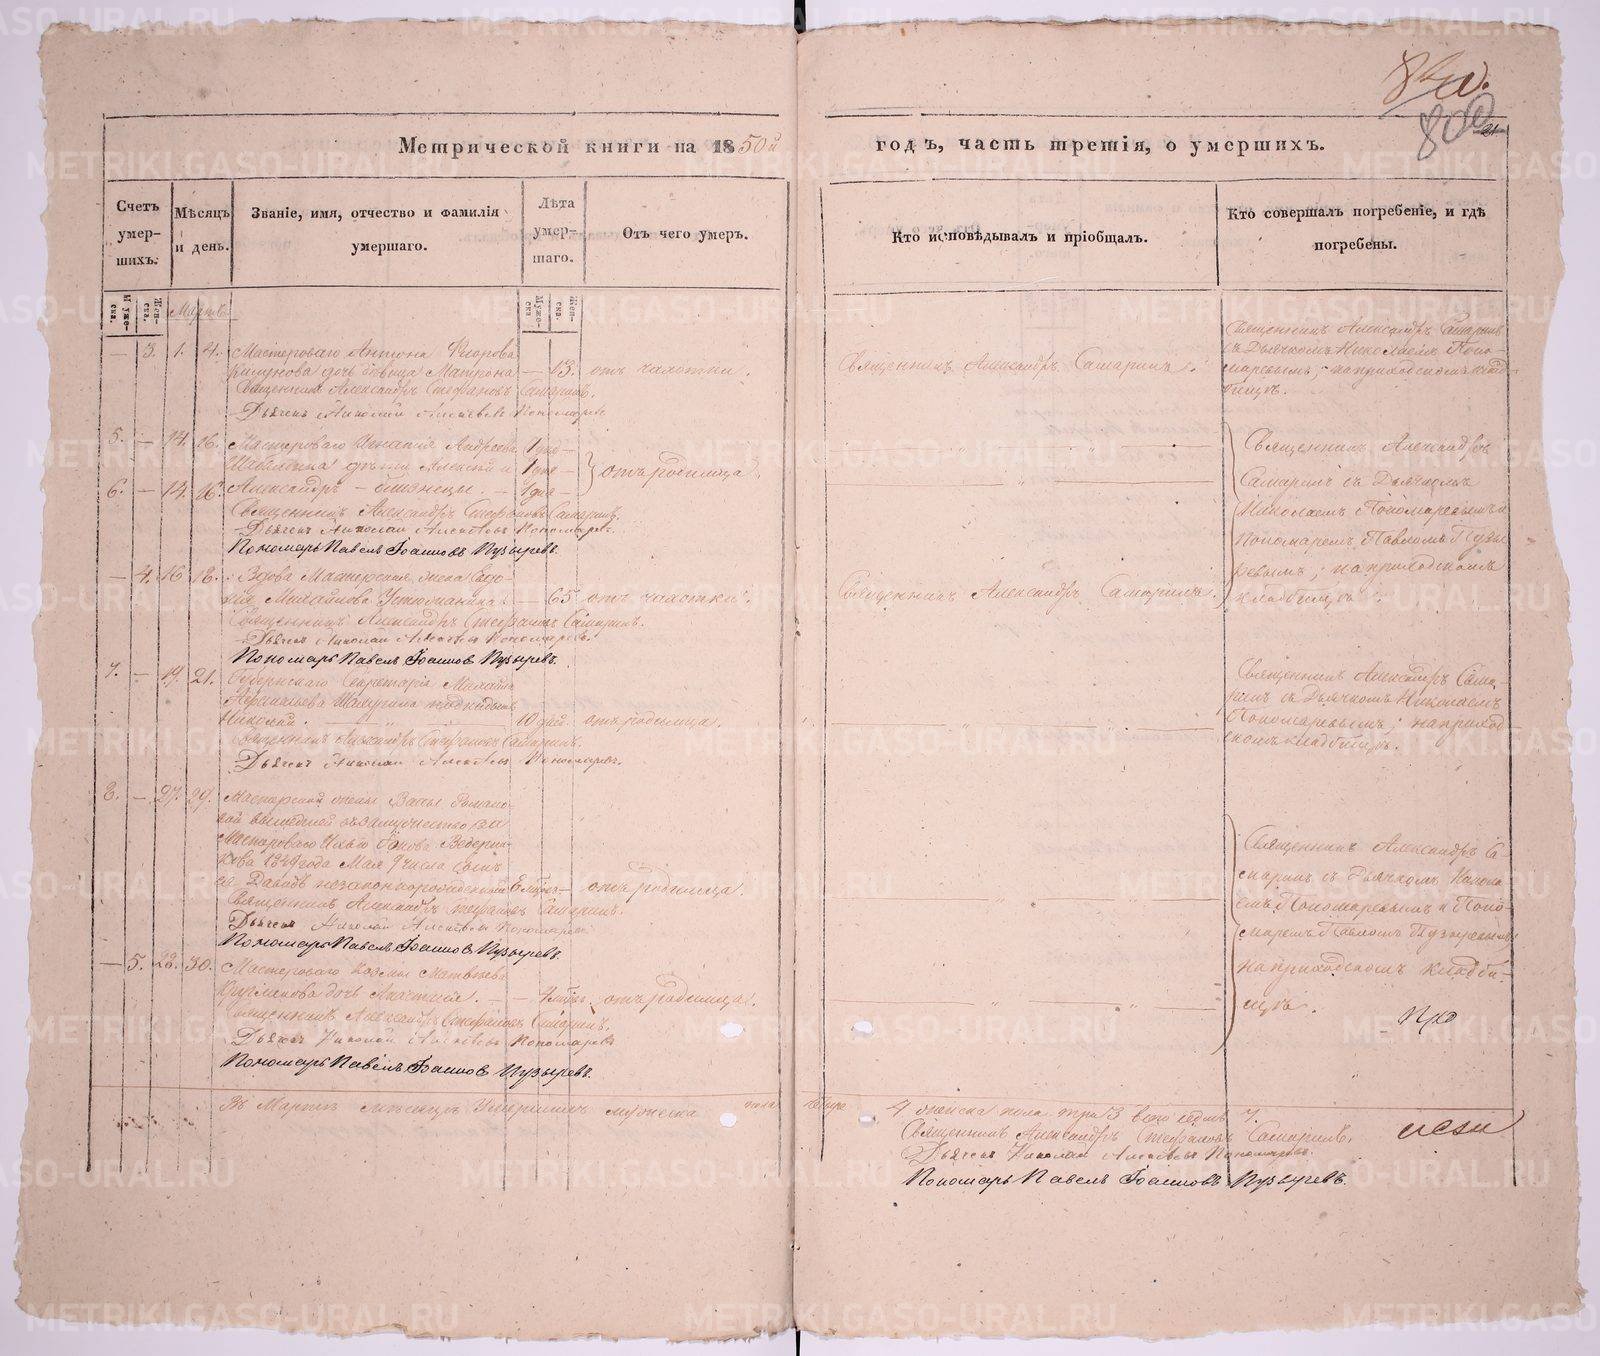 Метрической книги на 1850й
годъ, часть третія, о умершихъ.
Счетъ умер-шихъ.
Мѣсяцъ и день.
Званіе, имя, отчество и фамилія умершаго.
Лѣта умер-шаго.
Отъ чего умеръ.
Кто исповѣдывалъ и пріобщалъ.
Кто совершалъ погребеніе, и гдѣ погребены.
Муже-ска.
Жен-ска.
Мартъ
Муже-ска
Жен-ска.
— 3. 1. 4. Мастероваго Антона
дочь девица Матрона — 13. отъ чахотки.
Священникъ Александръ Стефановъ Самаринъ.
Дьячекъ Николай Алексѣевъ Пономаревъ
Священникъ Александръ Самаринъ.
Священникъ Александръ Самаринъ
съ Дьячкомъ Николаемъ Поно-
маревымъ; на приходскомъ клад-
бищѣ.
5. — 14. 16. Мастероваго Игнатія Андреева
дѣти Алексѣй и
6. — 14. 16. Александръ — близнецы. — 1 дня —
отъ родимца
Священникъ Александръ Стефановъ Самаринъ.
Дьячекъ Николай Алексѣевъ Пономаревъ.
Пономарь Павелъ Іоанновъ Пузыревъ.
Священникъ Александръ
Самаринъ съ Дьячкомъ
Николаемъ Пономаревымъ и
Пономаремъ Павломъ Пузы
ревымъ; на приходскомъ
кладбищѣ.
— 4. 16 18. Вдова Мастерская жена Евдо-
кія Михайлова Устюжанина — 65 отъ чахотки.
Священникъ Александръ Стефановъ Самаринъ.
Дьячекъ Николай Алексѣевъ Пономаревъ.
Пономарь Павелъ Іоанновъ Пузыревъ.
Священникъ Александръ Самаринъ
7. — 19. 21. Губернскаго Секретаря Михаила
подкидышъ
Николай. 10 дней отъ родимца.
Священникъ Александръ Стефановъ Самаринъ.
Дьячекъ Николай Алексѣевъ Пономаревъ.
Священникъ Александръ Сама-
ринъ съ Дьячкомъ Николаемъ
Пономаревымъ; на приход
скомъ кладбищѣ.
8. — 27. 29. Мастерской жены Вассы Романо-
вой вышедшей въ замужество за
Мастероваго Ведерни-
кова 1849 года Мая 9 числа сынъ
ея Давидъ незаконнорожденный — отъ родимца.
Священникъ Александръ Стефановъ Самаринъ.
Дьячекъ Николай Алексѣевъ Пономаревъ
Пономарь Павелъ Іоанновъ Пузыревъ.
Священникъ Александръ Са-
маринъ съ Дьячкомъ Никола
емъ Пономаревымъ и Поно-
маремъ Павломъ Пузыревымъ
на приходскомъ кладби-
щѣ.
— 5. 28. 30. Мастероваго Козмы Матвѣева
дочь отъ родимца.
Священникъ Александръ Стефановъ Самаринъ.
Дьячекъ Николай Алексѣевъ Пономаревъ
Пономарь Павелъ Іоанновъ Пузыревъ.
Въ Мартѣ мѣсяцѣ Умершихъ мужеска пола четыре 4 женска пола три 3 всего седмь 7.
Священникъ Александръ Стефановъ Самаринъ.
Дьячекъ Николай Алексѣевъ Пономаревъ.
Пономарь Павелъ Іоанновъ Пузыревъ.
METRIKI.GASO-URAL.RU